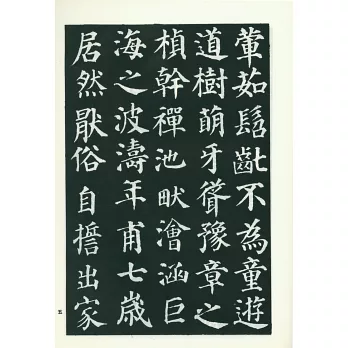 葷茹髫齓不為童遊
道樹萌牙聳豫章之
楨幹禪池畎澮涵巨
海之波濤年甫七歲
居然猒俗自誓出家
五